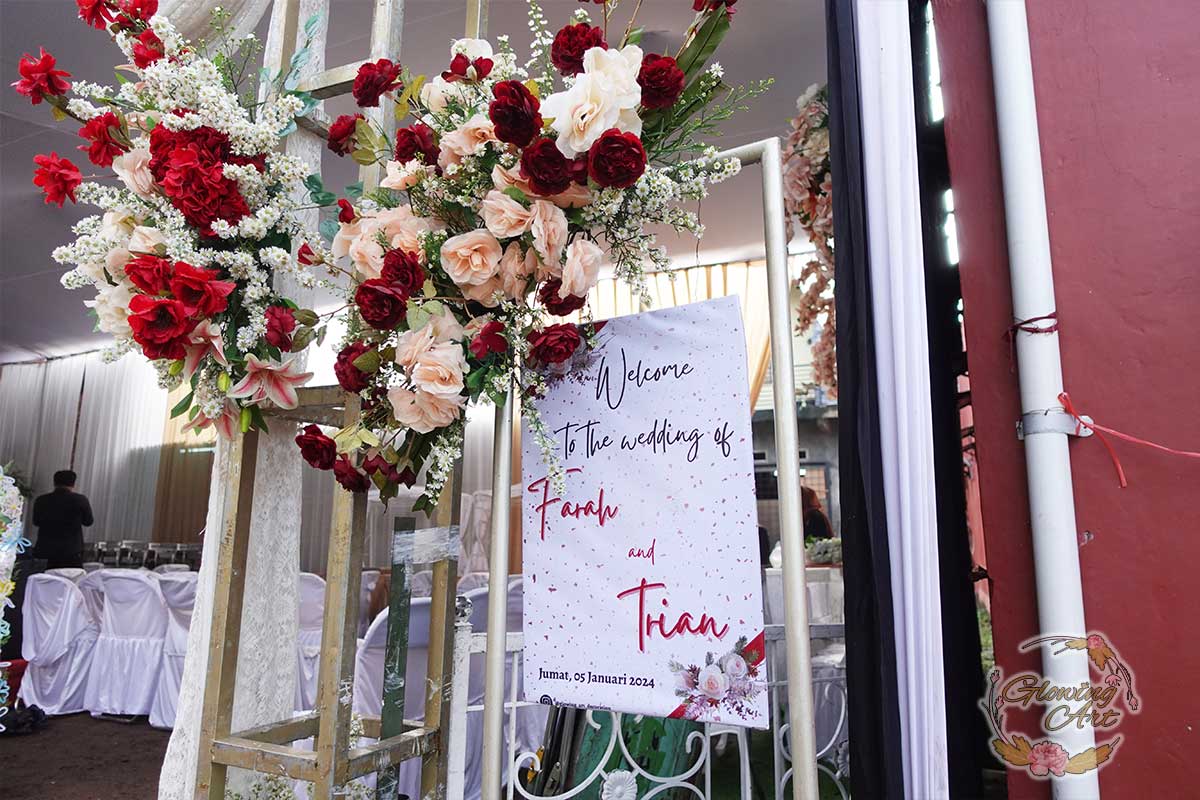 Welcome
to the wedding of
Farah
and
Trian
Jumat, 05 Januari 2024
Glowing
Art